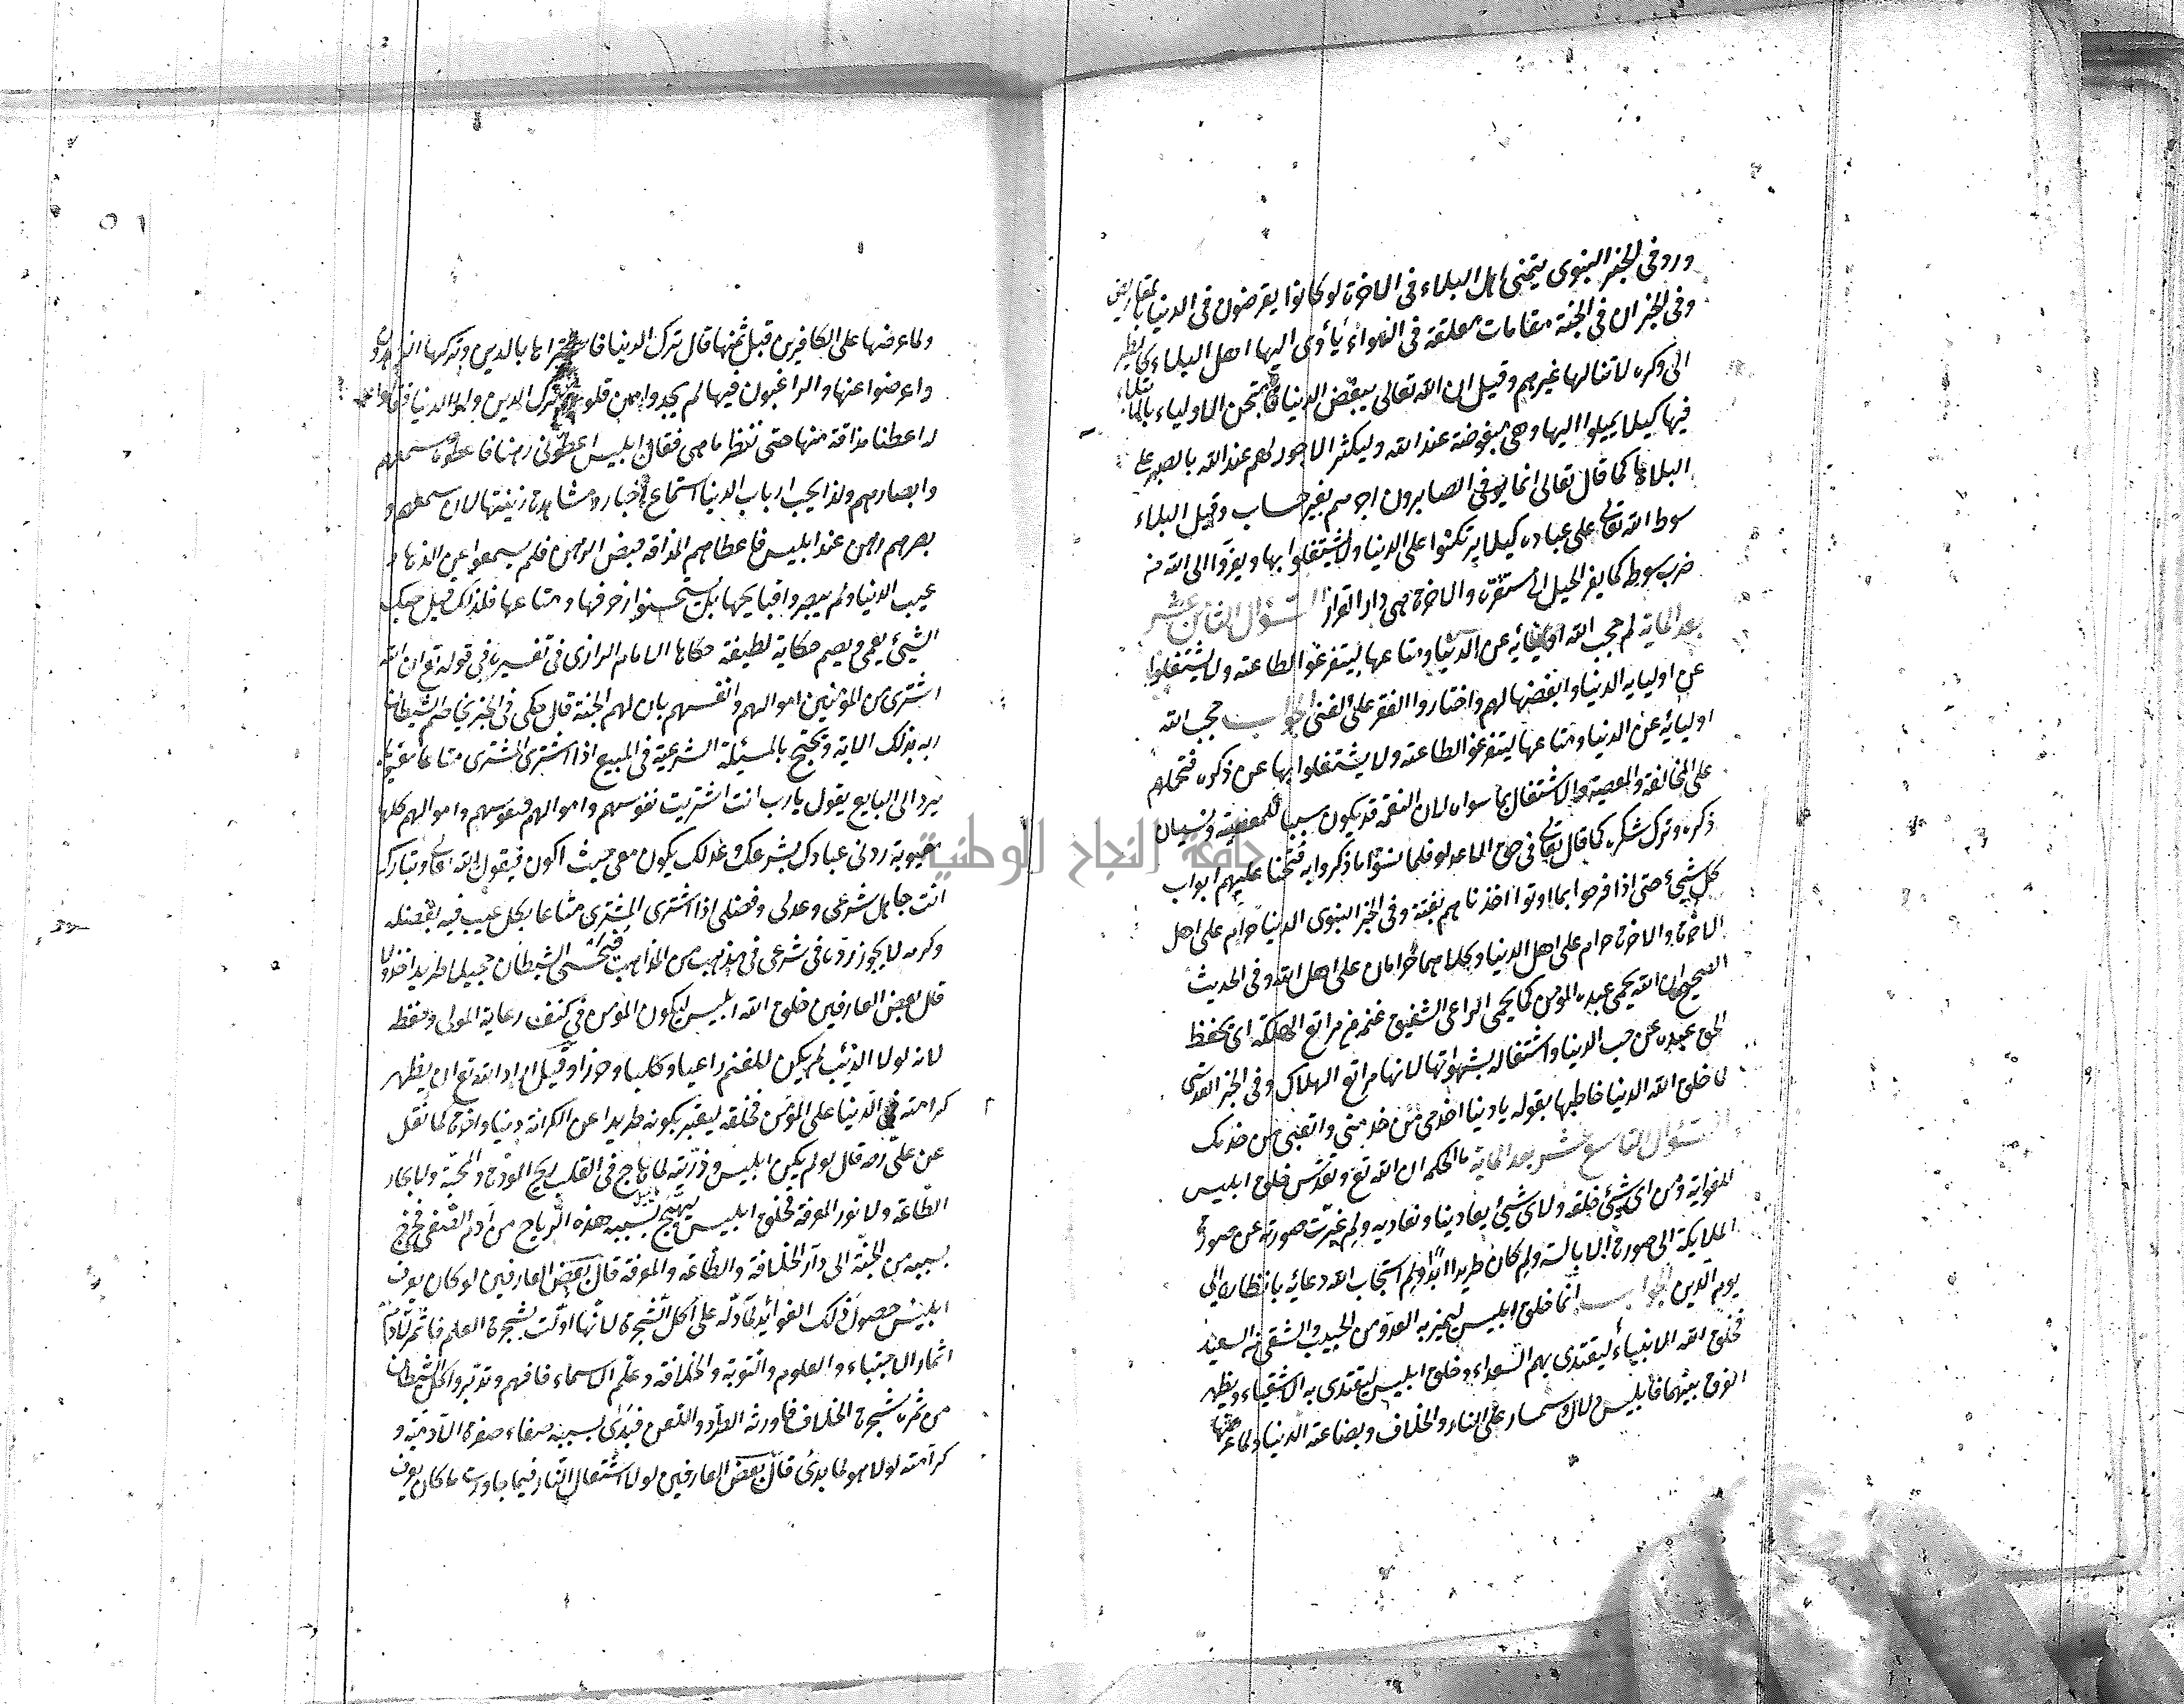 ورد في الخبر النبوي يتمنى اهل البلاء في الاخرة لو كانوا يقرضون في الدنيا بالمقاريض
وفي الخبر ان في الجنة مقامات معلقة في الهواء يأوى اليها اهل البلاء كالطير
الى وكره لا تنالها غيرهم وقيل ان الله تعالى يبغض الدنيا فامتحن الاولياء بالبلاء
فيها كيلا يميلوا اليها وهي مبغوضة عند الله وليكثر الاجور لهم عند الله بالصبر على
البلاء كما قال تعالى انما يوفى الصابرون اجرهم بغير حساب وقيل البلاء
سوط الله تعالى على عباده كيلا يركنوا على الدنيا ولا يشتغلوا بها ويفروا الى الله من
ضرب سوطه كما يفر الخيل الى مستقره والاخرة هي دار القرار السؤال الثامن عشر
بعد المايه لم حجب الله اوليائه عن الدنيا ومتاعها ليتفرغوا لطاعته ولا يشتغلوا
عن اوليايه الدنيا وابغضها لهم واختاروا الفقر على الغنى الجواب حجب الله
اوليائه عن الدنيا ومتاعها ليتفرغوا لطاعته ولا يشتغلوا بها عن ذكره فتحملهم
على المخالفة والمعصية والاشتغال بما سواه لان النعمة قد يكون سببا للمعصية ونسيان
ذكره وترك شكره كما قال تعالى في حق الماعدلو فلما نسوا ما ذكروا به فتحنا عليهم ابواب
كل شيء حتى اذا فرحوا بما اوتوا اخذناهم بغتة وفي الخبر النبوي الدنيا حرام على اهل
الاخرة والاخرة حرام على اهل الدنيا وكلاهما حرامان على اهل الله وفي الحديث
الصحيح ان الله يحمي عبده المؤمن كما يحمي الراعي الشفيق غنمه من مراتع الهلكة اى يحفظ
الحق عبده عن حب الدنيا واشتغاله بشهواتها لانها مراتع الهلاك وفي الخبر القدسي
لما خلق الله الدنيا خاطبها بقوله يا دنيا اخدمي من خدمني واتعبي من خدمك
السؤال التاسع عشر بعد المايه ما الحكمة ان الله تع وتقدس خلق ابليس
للغواية ومن اى شيئ خلقه ولاى شيئ يعادينا ونعاديه ولم غيرت صورته عن صورة
الملايكة الى صورة الابالسة ولم كان طريدا ابدا ولم استجاب الله دعائه بانظاره الى
يوم الدين الجواب انما خلق ابليس ليميز به العدو من الحبيب والشقي من السعيد
فخلق الله الانبياء ليقتدى بهم السعداء وخلق ابليس ليقتدى به الاشقياء ويظهر
الفرق بينهما فابليس دلال وسمسار على النار والخلاف وبضاعته الدنيا ولما عرضها
ولما عرضها على الكافرين قيل ثمنها قال ترك الدنيا فاشتراها بالدين وتركها الزاهدون
واعرضوا عنها والراغبون فيها لم يجدوا من قلوبهم ترك الدين ولا الدنيا فقالوا
اعطنا مذاقة منها حتى ننظر ما هي فقال ابليس اعطوني رهنا فاعطوه سمعهم
وابصارهم ولذا يحب ارباب الدنيا استماع اخبارها ومشاهدة زينتها لان سمعهم و
بصرهم رهن عند ابليس فاعطاهم المذاقة بقبض الرهن فلم يسمعوا من الزهاد
عيب الدنيا ولم يبصروا قبايحها بل استحسنوا زخرفها ومتاعها فلذلك قيل حبك
الشيئ يعمى ويصم حكاية لطيفة حكاها الامام الرازى في تفسيره في قوله تع ان الله
اشترى من المؤمنين اموالهم وانفسهم بان لهم الجنة قال حكى في الخبر يخاصم الشيطان
ربه بذلك الاية ويحتج بالمسئلة الشرعية في المبيع اذا اشترى المشترى متاعا معيوبا
يرد الى البايع يقول يا رب انت اشتريت نفوسهم واموالهم فنفوسهم واموالهم كلها
معيوبة ردني عبادك بشرعك وعدلك يكون معي حيث اكون فيقول الله تعالى وتبارك
انت جاهل شرعي وعدلي وفضلي اذا اشترى المشترى متاعا بكل عيب فيه بفضله
وكرمه لا يجوز رده في شرعي في مذهب من المذاهب فيخسئ الشيطان خجيلا طريدا مخذولا
قال بعض العارفين خلق الله ابليس ليكون المؤمن في كنف رعاية المولى وحفظه
لانه لولا الذئب لم يكن للغنم راعيا وكلبا وحرزا وقيل اراد الله تع ان يظهر
كرامته في الدنيا على المؤمن فخلقه ليعتبر بكونه طريدا عن الكرامة دنيا واخرة كما نقل
عن علي رضه قال لو لم يكن ابليس وذريته لما هاج في القلب ريح المودة والمحبة ولا بحار
الطاعة ولا نور المعرفة فخلق ابليس ليهيج بسببه هذه الرياح من آدم الصفي فخرج
بسببه من الجنة الى دار الخلافة والطاعة والمعرفة قال بعض العارفين لو كان يعرف
ابليس حصول ذلك الفوائد لما دله على اكل الشجرة لانها اولت بشجرة العلم فاثمر لآدم
اثمار الاجتباء والعلوم والتوبة والخلافة وعلم الاسماء فافهم وتدبر واكل الشيطان
من ثمرة شجرة الخلاف فاورثه الطرد واللعن فبدى بسببه صفاء صفوة الآدمية و
كرامته لولا هو لما بدى قال بعض العارفين لولا اشتعال النار فيما جاورت ما كان يعرف
جامعة النجاح الوطنية